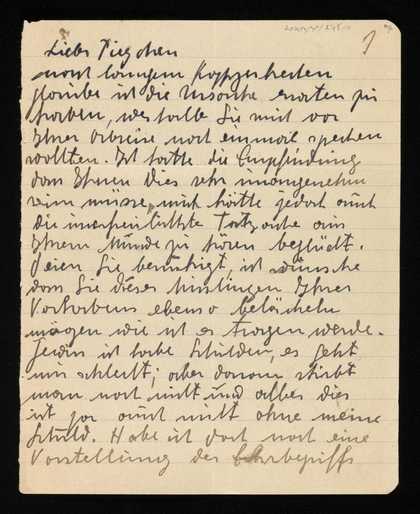 1
Liebes Piepchen
nach langem Kopfzerbrechen
glaube ich die Ursache erraten zu
haben, weshalb Sie mich vor
Ihrer Abreise noch einmal sprechen
wollten. Ich hatte die Empfindung
dass Ihnen dies sehr unangenehm
sein müsse, mich hätte jedoch auch
die Tatsache aus
Ihrem Munde zu hören beglückt.
Seien Sie beruhigt, ich wünsche
dass Sie dieses Misslingen Ihres
Vorhabens ebenso belächeln
mögen wie ich es tragen werde.
Gewiss ich habe Schulden, es geht
mir schlecht; aber daran stirbt
man noch nicht und alles dies
ist gar auch nicht ohne meine
Schuld. Habe ich doch noch eine
Vorstellung des Ehrbegriffs